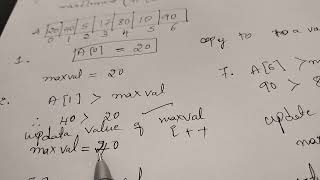 A 20 40 5 17 80 10 90
0 1 2 3 4 5 6
1.
A[0] = 20
copy to a va
maxval = 20
2.
A[1] > maxval
7. A[6] > max
∴ 40 > 20
90 > 8
update value of maxval
update
i++
maxval = 40